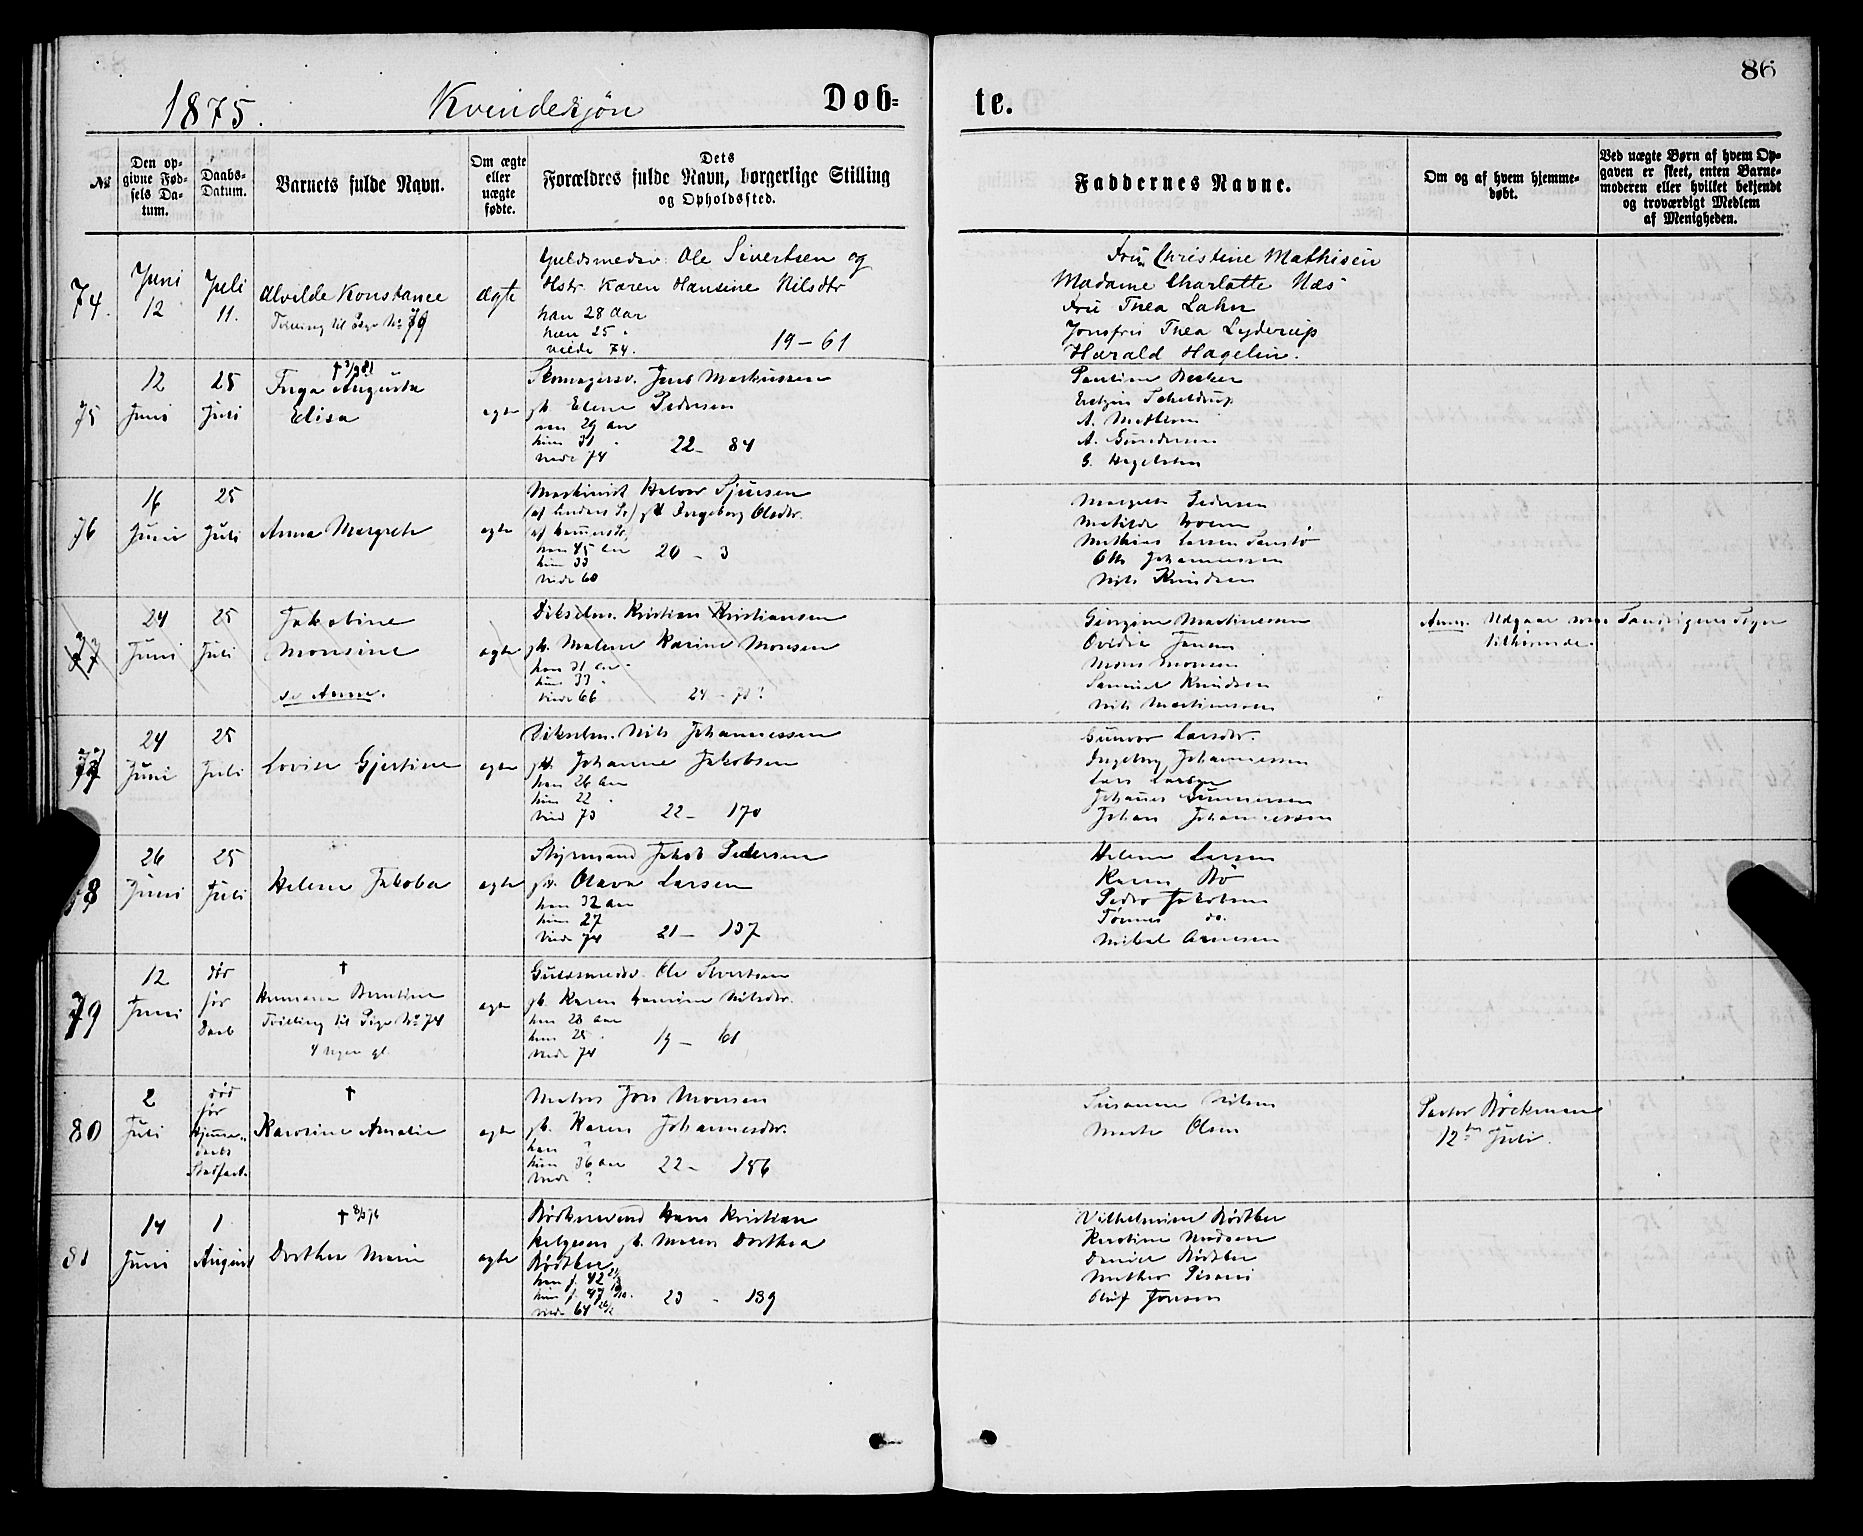 86
1875.
Kvindekjøn
Døb-
te.
No
Den op-
givne Fød-
sels Da-
tum.
Daabs-
Datum.
Barnets fulde Navn.
Om ægte
eller
uægte
fødte.
Dets
Forældres fulde Navn, borgerlige Stilling
og Opholdssted.
Faddernes Navne.
Om og af hvem hjemme-
døbt.
Ved uægte Børn af hvem Op-
gaven er skeet, enten Barne-
moderen eller hvilket bekjendt
og troværdigt Medlem
af Menigheden.
74.
Juni
12
Juli
11.
Alvilde Konstance
Tvilling til Pige No 79
Ægte
Guldsmedsv. Ole Sivertsen og
Hstr Karen Hansine Nilsdtr
han 28 Aar
hun 25
viede 74.
19 - 61
Fru Christine Mathisen
Madame Charlotte Næs
Fru Thea Lahn
Jomfru Thea Lyderup
Harald Hagelin.
75
12
Juni
25
Juli
Inga Augusta
Elisa
ægte
Skomagersv. Jens Markussen
Elene Pedersen
29 aar
hun 31
viede 74
22 - 84
Pauline Becker
A. Gundersen
76
16
Juni
25
Juli
Anna Margrete
ægte
Maskinist Halvor Sjursen
Ingeborg Olsdtr.
han 45 aar
hun 33
viede 60
20 - 3
Margrethe Pedersen
Mathias Larsen
Otto Johannessen
Nils Knudsen
77
24
Juni
25
Juli
Jakobine
Monsine
se Anm.
ægte
Dikselm. Kristian Kristiansen
Malene Karine Monsen
han 31 aar
hun 33
viede 66
24 - 71?
Georgine Martinessen
Ovidia Jensen
Mons Monsen
Samuel Knudsen
Nils Martinessen
Anm. Udgaar som Sandvigens Sogn
tilhørende.
77
24
Juni
25
Juli
Lovise Gjertine
ægte
Dikselm. Nils Johannessen
Johanne Jakobsen
han 26 aar
hun 22
viede 73
22 - 170
Gunvor Larsdtr.
Ingeborg Johannessen
Lars Larsen
Johannes Gunnersen
Johan Johannessen
78
26
Juni
25
Juli
Helene Jakoba
ægte
Styrmand Jakob Pedersen
Olava Larsen
han 32 aar
hun 27
viede 74
21 - 137
Helene Larsen
Karen Bø
Peder Jakobsen
Tønnes do.
Mikal Arnesen
79
12
Juni
død
før
Daab
†
Hermana Berntine
Tvilling til Pige No 74
4 Uger gl.
ægte
Guldsmedsv. Ole Sivertsen
gb. Karen Hansine Nilsdtr.
han 28 aar
hun 25
viede 74
19 - 61
80
2
Juli
død
før
Hjemme-
daabs
Stadfæst.
†
Karoline Amalie
ægte
Matros Jon Monsen
gb. Karen Johannesdtr.
han ?
hun 36 aar
viede ?
22 - 156
Susanne Nilsen
Marta Olsen
Pastor Bøckman
12te Juli.
81
14
Juni
1
August
†
Dorthea Marie
ægte
Bødkersvend Hans Kristian
Helgesen gb. Maren Dorthea
Rødtber
han f. 42
hun f. 47
viede 64
23 - 139
Vilhelmine Rødtber
Kirstine Madsen
Daniel Rødtber
Oluf Jonsen